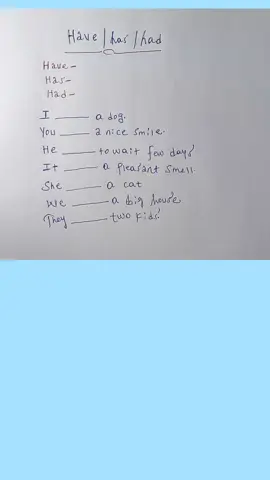 Have / has / had
Have -
Has -
Had -
I ____ a dog.
You ____ a nice smile.
He ____ to wait few days.
It ____ a pleasant smell.
She ____ a cat
We ____ a big house.
They ____ two kids.